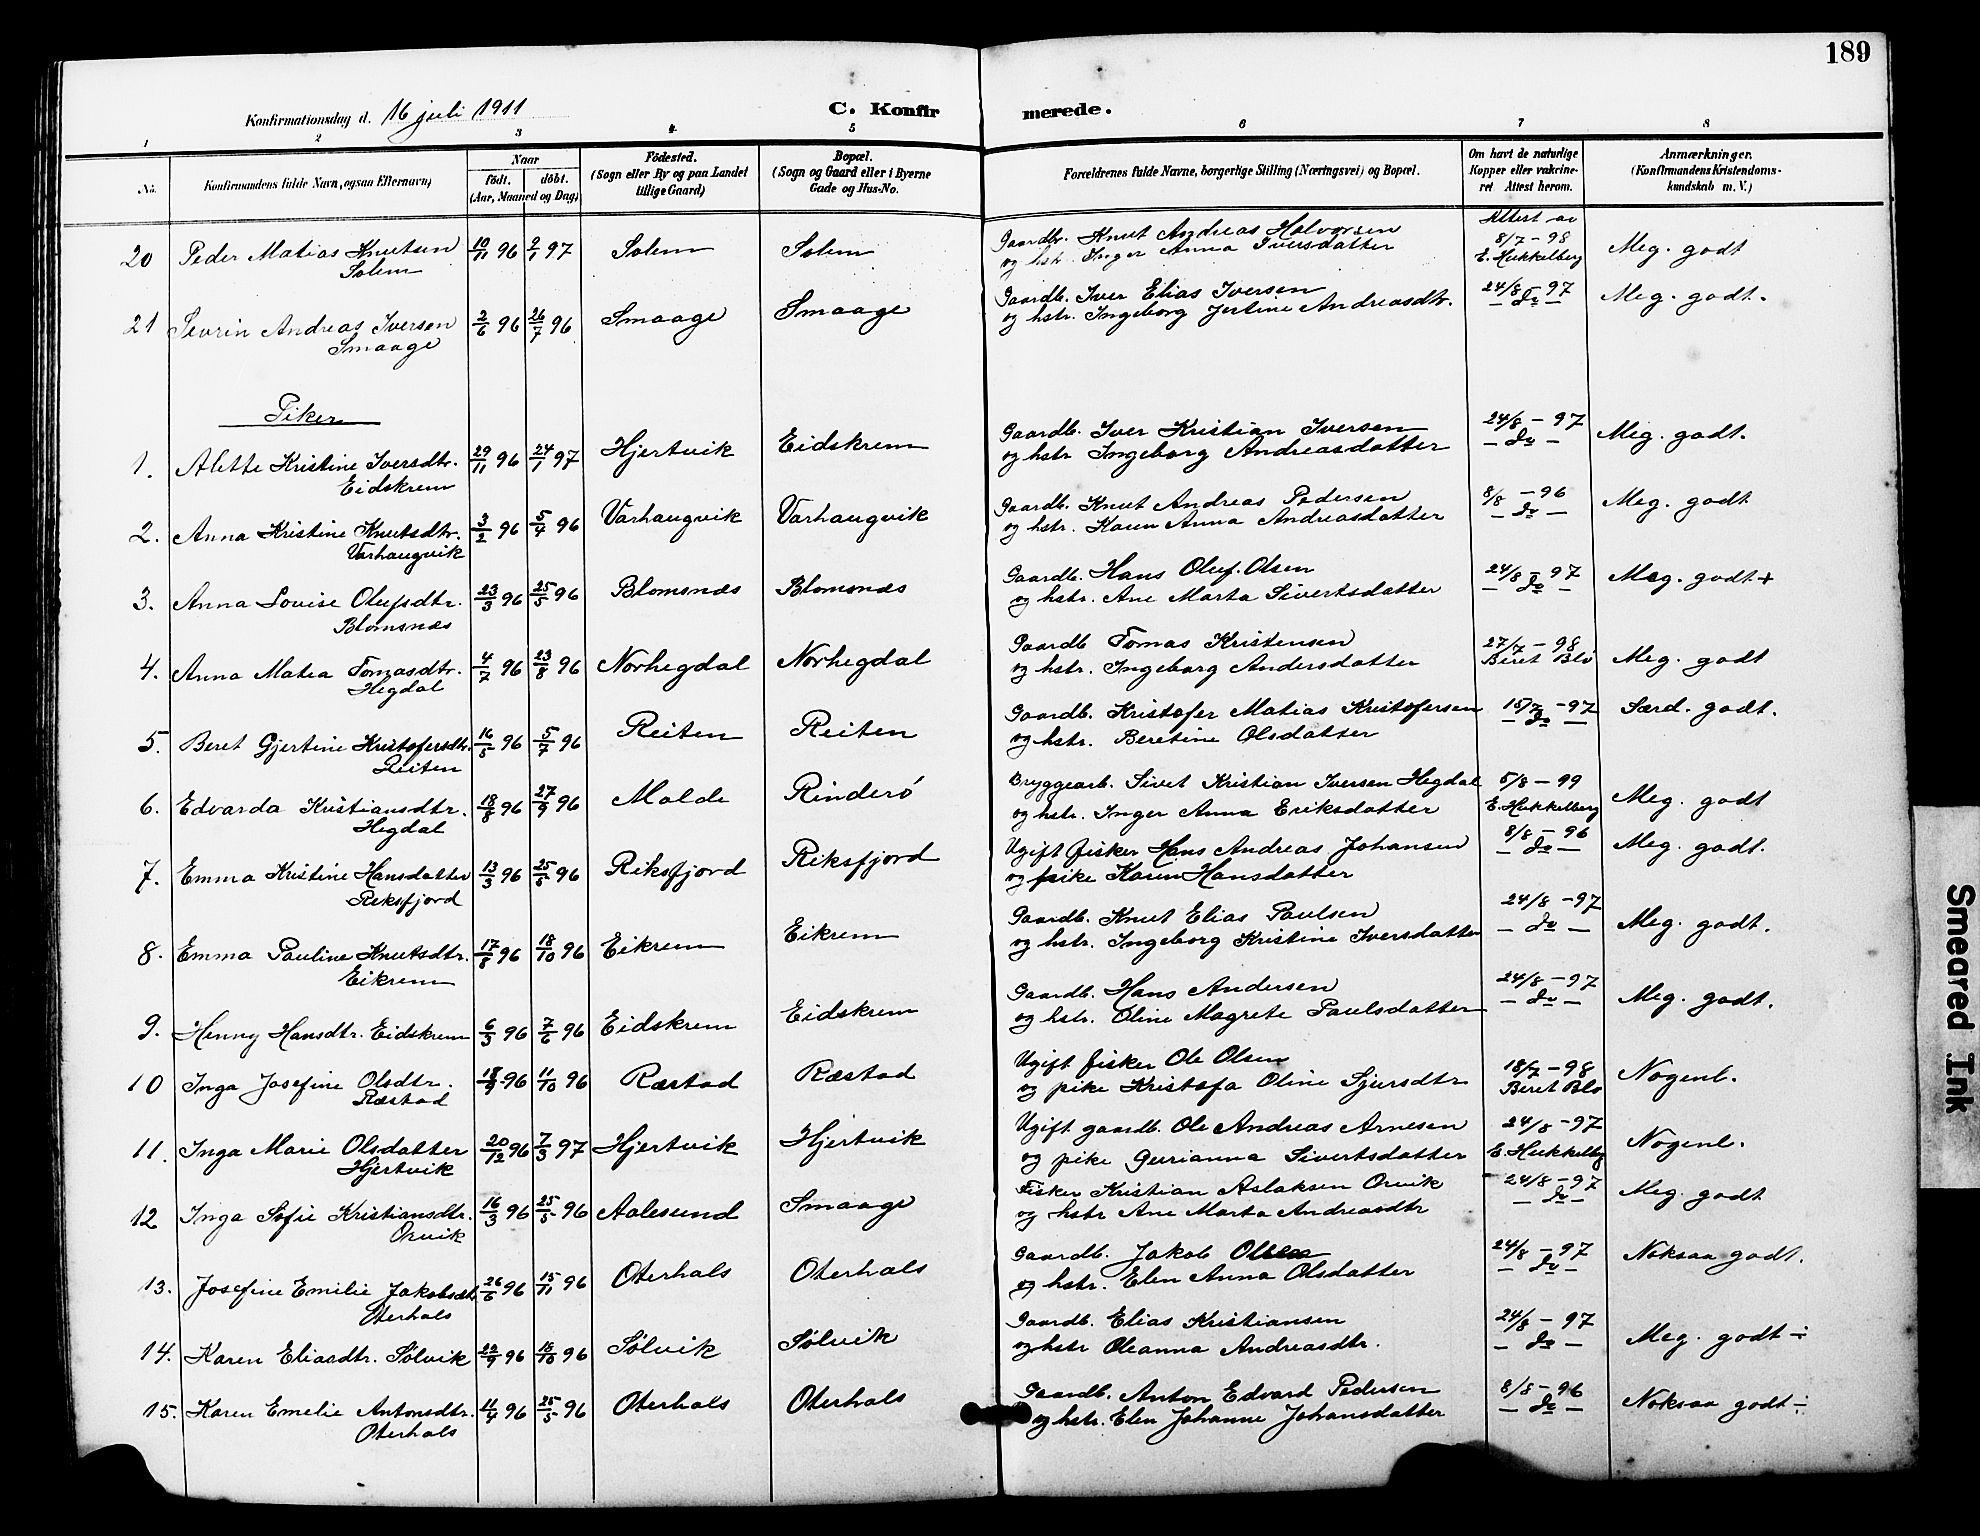 189
Konfirmationsdag d. 16 juli 1911
C. Konfirmerede.
1 2 3 4 5 6 7 8
No.
Konfirmandens fulde Navn, ogsaa Efternavn)
Naar
födt. döbt.
(Aar, Maaned og Dag)
Födested.
(Sogn eller By og paa Landet
tillige Gaard)
Bopæl.
(Sogn og Gaard eller i Byerne
Gade og Hus-No.
Forældrenes fulde Navne, borgerlige Stilling (Næringsvei) og Bopæl.
Om havt de naturlige
Kopper eller vakcine-
ret Attest herom.
Anmærkninger.
(Konfirmandens Kristendoms-
kundskab m. V.)
20 Peder Matias Knutsen 10/11 96 2/1 97 Solem Solem Gaardbr. Knut Andreas Halvorsen Attest av 8/7-98 Meg. godt
Solem og hstr. Inger Anna Iversdatter E. Hukkelberg
21 Sevrin Andreas Iversen 2/6 96 26/7 96 Smaage Smaage Gaardb. Iver Elias Iversen 24/8-97 Meg. godt.
Smaage og hstr. Ingeborg Jertine Andreasdtr. - do -
Piker
1. Alette Kristine Iversdtr. 29/11 96 24/1 97 Hjertvik Eidskrem Gaardb. Iver Kristian Iversen 24/8-97 Meg. godt.
Eidskrem og hstr Ingeborg Andreasdatter - do -
2. Anna Kristine Knutsdtr. 3/2 96 5/4 96 Varhaugvik Varhaugvik Gaardb. Knut Andreas Pedersen 8/8-96 Meg. godt
Varhaugvik og hstr. Karen Anna Andreasdatter - do -
3. Anna Lovise Olufsdtr. 23/3 96 25/5 96 Blomsnæs Blomsnæs Gaardb. Hans Oluf. Olsen 24/8-97 Meg. godt +
Blomsnæs og hstr. Ane Marta Sivertsdatter - do -
4. Anna Matea Tomasdtr. 4/7 96 23/8 96 Norhegdal Norhegdal Gaardb Tomas Kristensen 27/7-98 Meg. godt
Hegdal og hstr. Ingeborg Andersdatter Beret Blø
5. Beret Gjertine Kristofersdtr. 16/5 96 5/7 96 Reiten Reiten Gaardb. Kristofer Matias Kristofersen 15/7-97 Særd. godt.
Reiten og hstr. Beretine Olsdatter - do -
6. Edvarda Kristiansdtr. 18/8 96 27/9 96 Molde Rinderö Bryggearb. Sivet Kristian Iversen Hegdal 5/8-99 Meg. godt
Hegdal og hstr. Inger Anna Eriksdatter E. Hukkelberg
7. Emma Kristine Hansdatter 13/3 96 25/5 96 Riksfjord Riksfjord Ugift fisker Hans Andreas Johansen 8/8-96 Meg. godt.
Riksfjord og pike Karen Hansdatter - do -
8. Emma Pauline Knutsdtr. 17/8 96 18/10 96 Eikrem Eikrem Gaardb. Knut Elias Paulsen 24/8-97 Meg. godt.
Eikrem og hstr. Ingeborg Kristine Iversdatter - do -
9. Henny Hansdtr. Eidskrem 6/3 96 7/6 96 Eidskrem Eidskrem Gaardb. Hans Andersen 24/8-97 Meg. godt.
og hstr. Oline Magrete Paulsdatter - do -
10 Inga Josefine Olsdtr. 96 11/10 96 Ræstad Ræstad Ugift fisker Ole Olsen 18/7-98 Nogenl.
Ræstad og pike Kristofa Oline Sjursdtr Beret Blø
11. Inga Marie Olsdatter 20/12 96 7/3 97 Hjertvik Hjertvik Ugift gaardb. Ole Andreas Arnesen 24/8-97 Nogenl.
Hjertvik og pike Gurrianna Sivertsdatter E. Hukkelbg
12 Inga Sofie Kristiansdtr. 16/3 96 25/5 96 Aalesund Smaage Fisker Kristian Aslaksen Orvik 24/8-97 Meg. godt
Orvik og hstr Ane Marta Andreasdtr - do -
13. Josefine Emilie Jakobsdtr. 26/6 96 15/11 96 Oterhals Oterhals Gaardb. Jakob Olsen 24/8-97 Noksaa godt.
Oterhals og hstr. Elen Anna Olsdatter - do -
14. Karen Eliasdtr. Sölvik 22/9 96 18/10 96 Sölvik Sölvik Gaardb. Elias Kristiansen 24/8-97 Meg. godt ÷
og hstr Oleanna Andreasdtr. - do -
15. Karen Emelie Antonsdtr. 11/4 96 25/5 96 Oterhals Oterhals Gaardb. Anton Edvard Pedersen 8/8-96 Noksaa godt ÷
Oterhals og hstr. Elen Johanne Johansdatter - do -
Smeared Ink